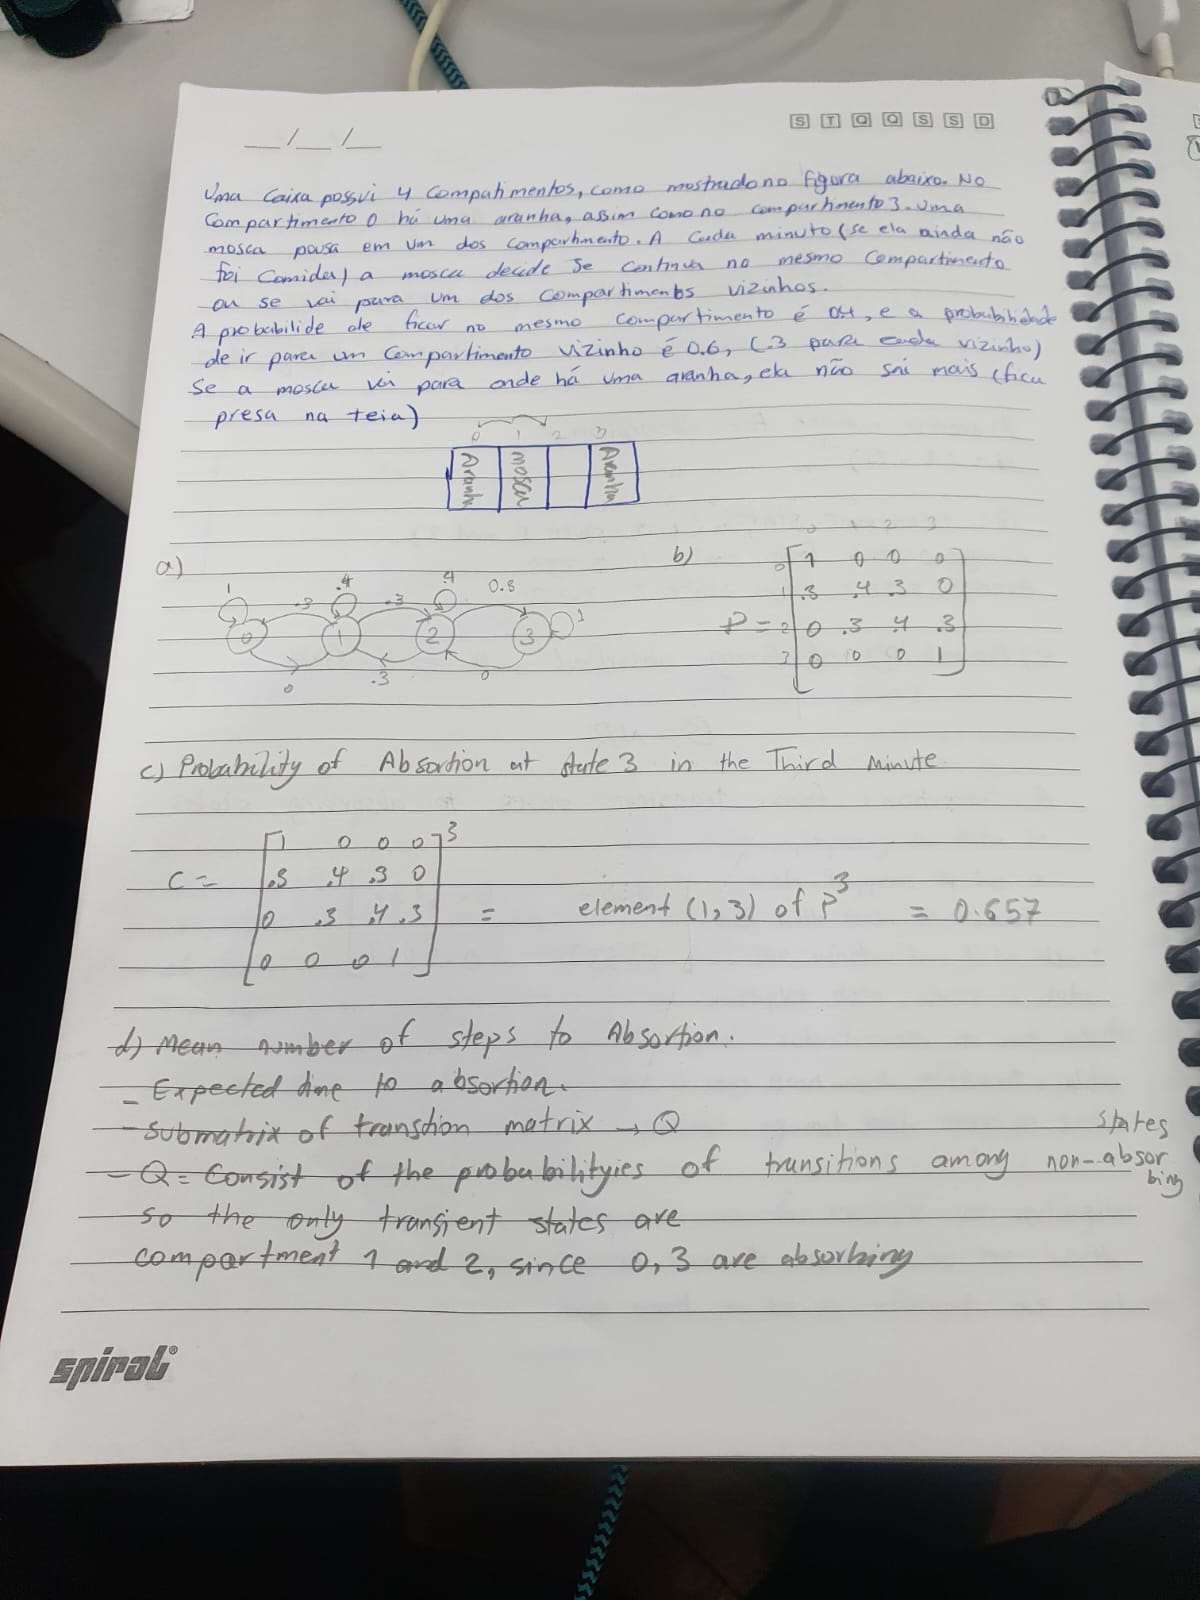 __/__/__
S T Q Q S S D
Uma Caixa possui 4 Compatimentos, como mostrado no figura abaixo. No
Compartimento 0 há uma aranha, assim como no compartimento 3. uma
mosca pousa em um dos compartimento. A Cada minuto (se ela ainda não
foi Comida) a mosca decide se continua no mesmo Compartimento
ou se vai para um dos compartimentos vizinhos.
A probabilide de ficar no mesmo compartimento é 0.4, e a probabilidade
de ir para um compartimento vizinho é 0.6, (.3 para cada vizinho)
Se a mosca vai para onde há uma aranha, ela não sai mais (fica
presa na teia)
0 1 2 3
Aranha mosca Aranha
a)
1 .3 .4 .3 .4 0.3 1
0 1 2 3
0 .3 0
b)
0 1 2 3
0 1 0 0 0
1 .3 .4 .3 0
P = 2 0 .3 .4 .3
3 0 0 0 1
c) Probability of Absortion at state 3 in the Third minute
1 0 0 0 3
C = .3 .4 .3 0
0 .3 .4 .3 = element (1,3) of P3 = 0.657
0 0 0 1
d) Mean number of steps to Absortion.
- Expected time to absortion.
- submatrix of transtion matrix → Q
- Q = Consist of the probabilityies of transitions among non-absorbing states
so the only transient states are
compartment 1 and 2, since 0, 3 are absorbing
spiral®